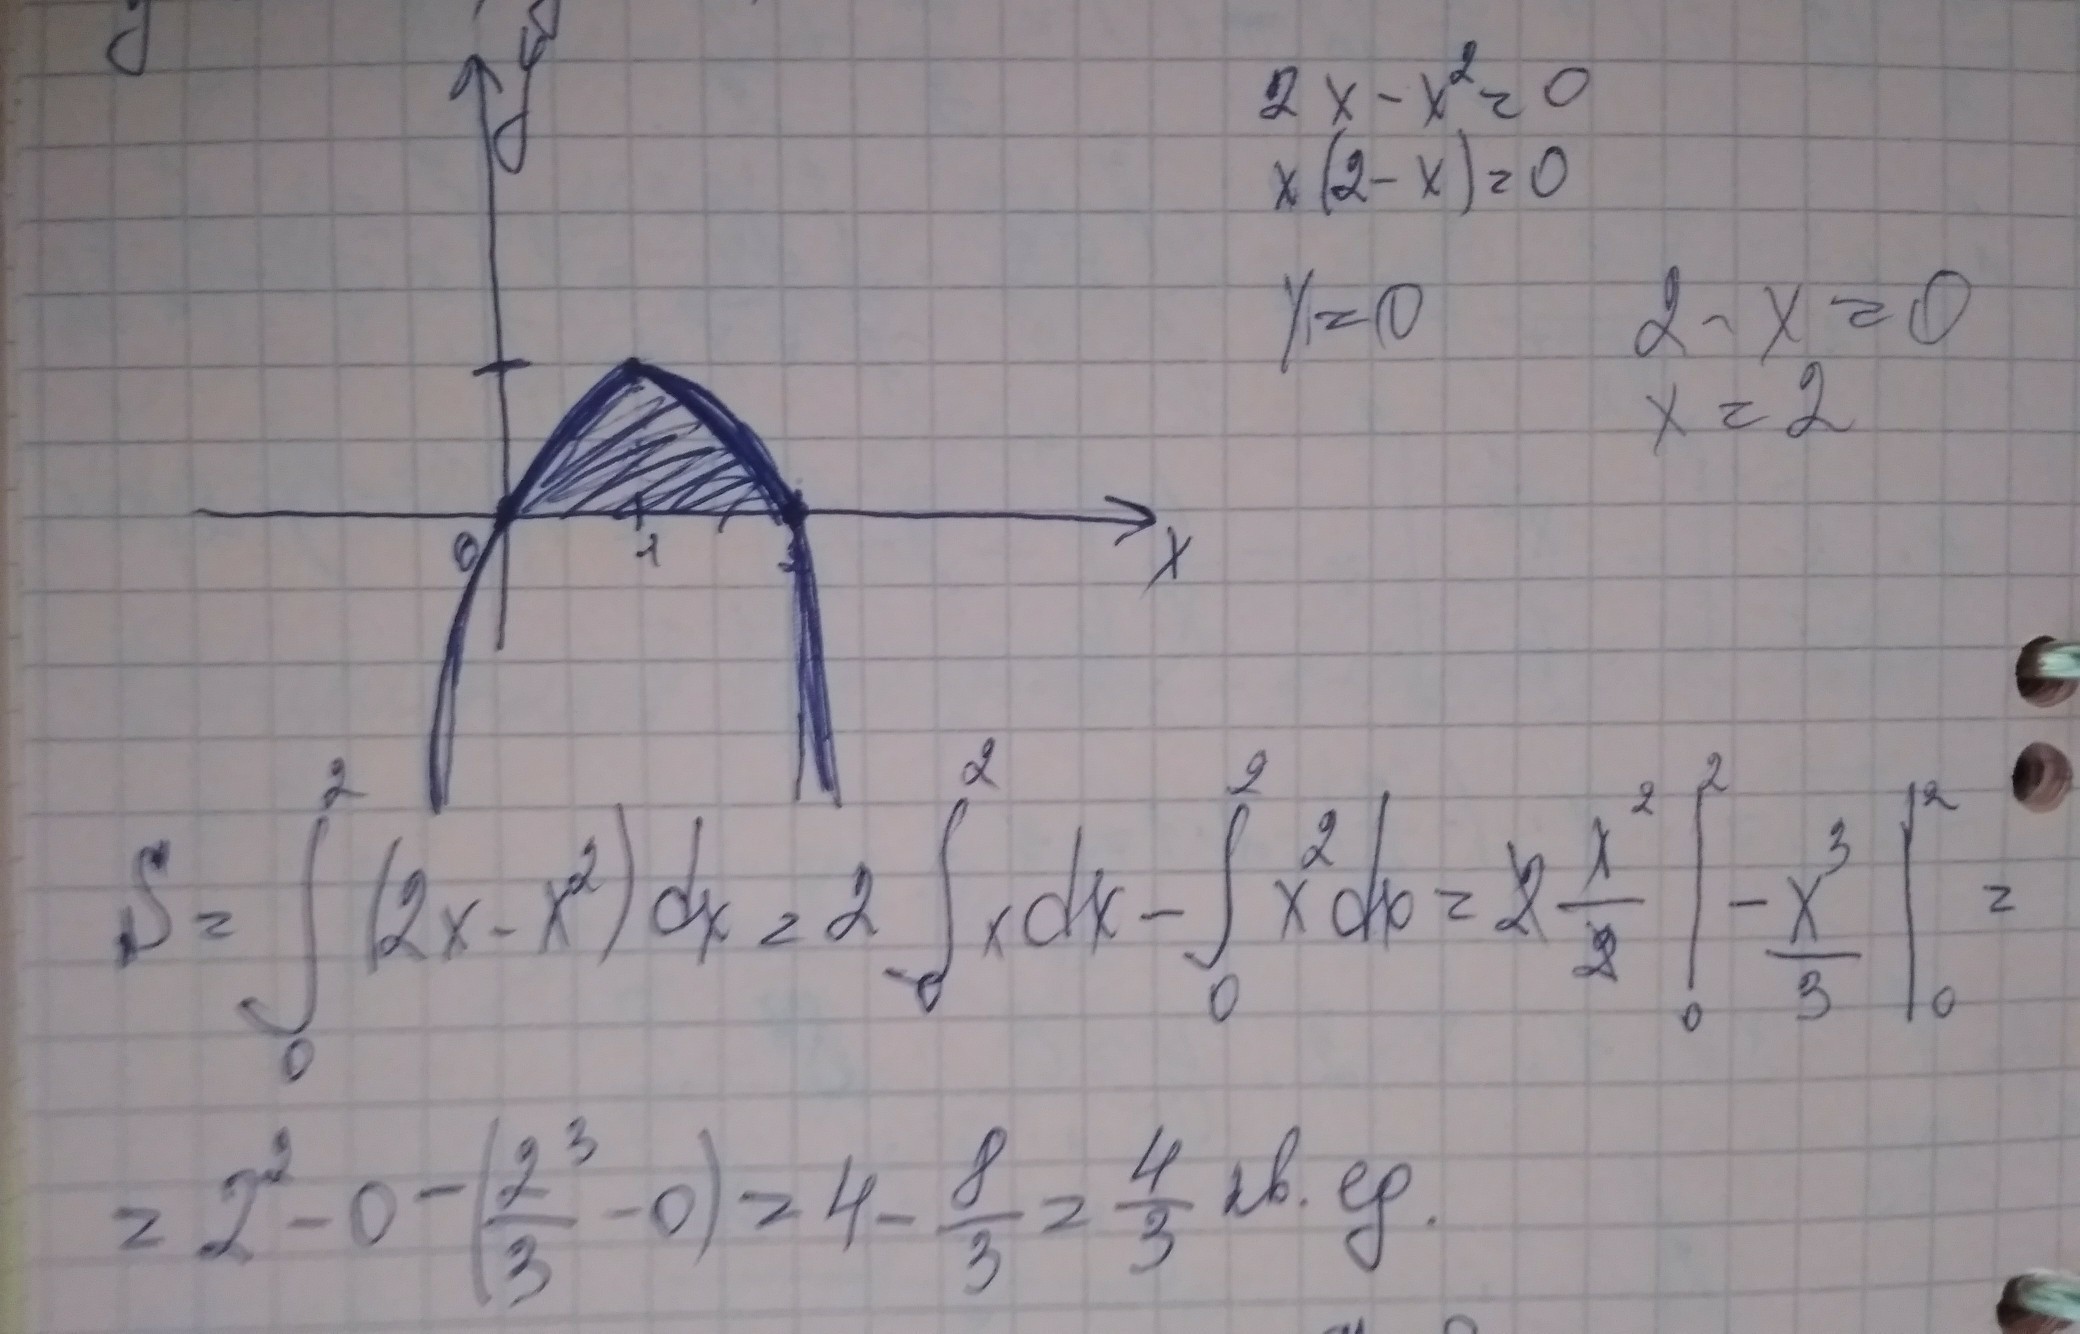 y
y
2x - x² = 0
x(2 - x) = 0
x = 0
2 - x = 0
x = 2
0 1 2
x
S = ∫₀² (2x - x²) dx = 2 ∫₀² x dx - ∫₀² x² dx = 2 x²/2 |₀² - x³/3 |₀² =
= 2² - 0 - (2³/3 - 0) = 4 - 8/3 = 4/3 кв. ед.